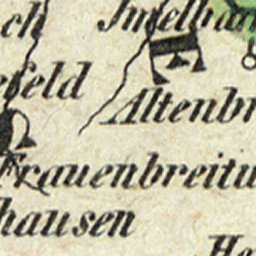 ch Inselbar
E
efeld Altenbr
Frauenbreitu
hausen
He